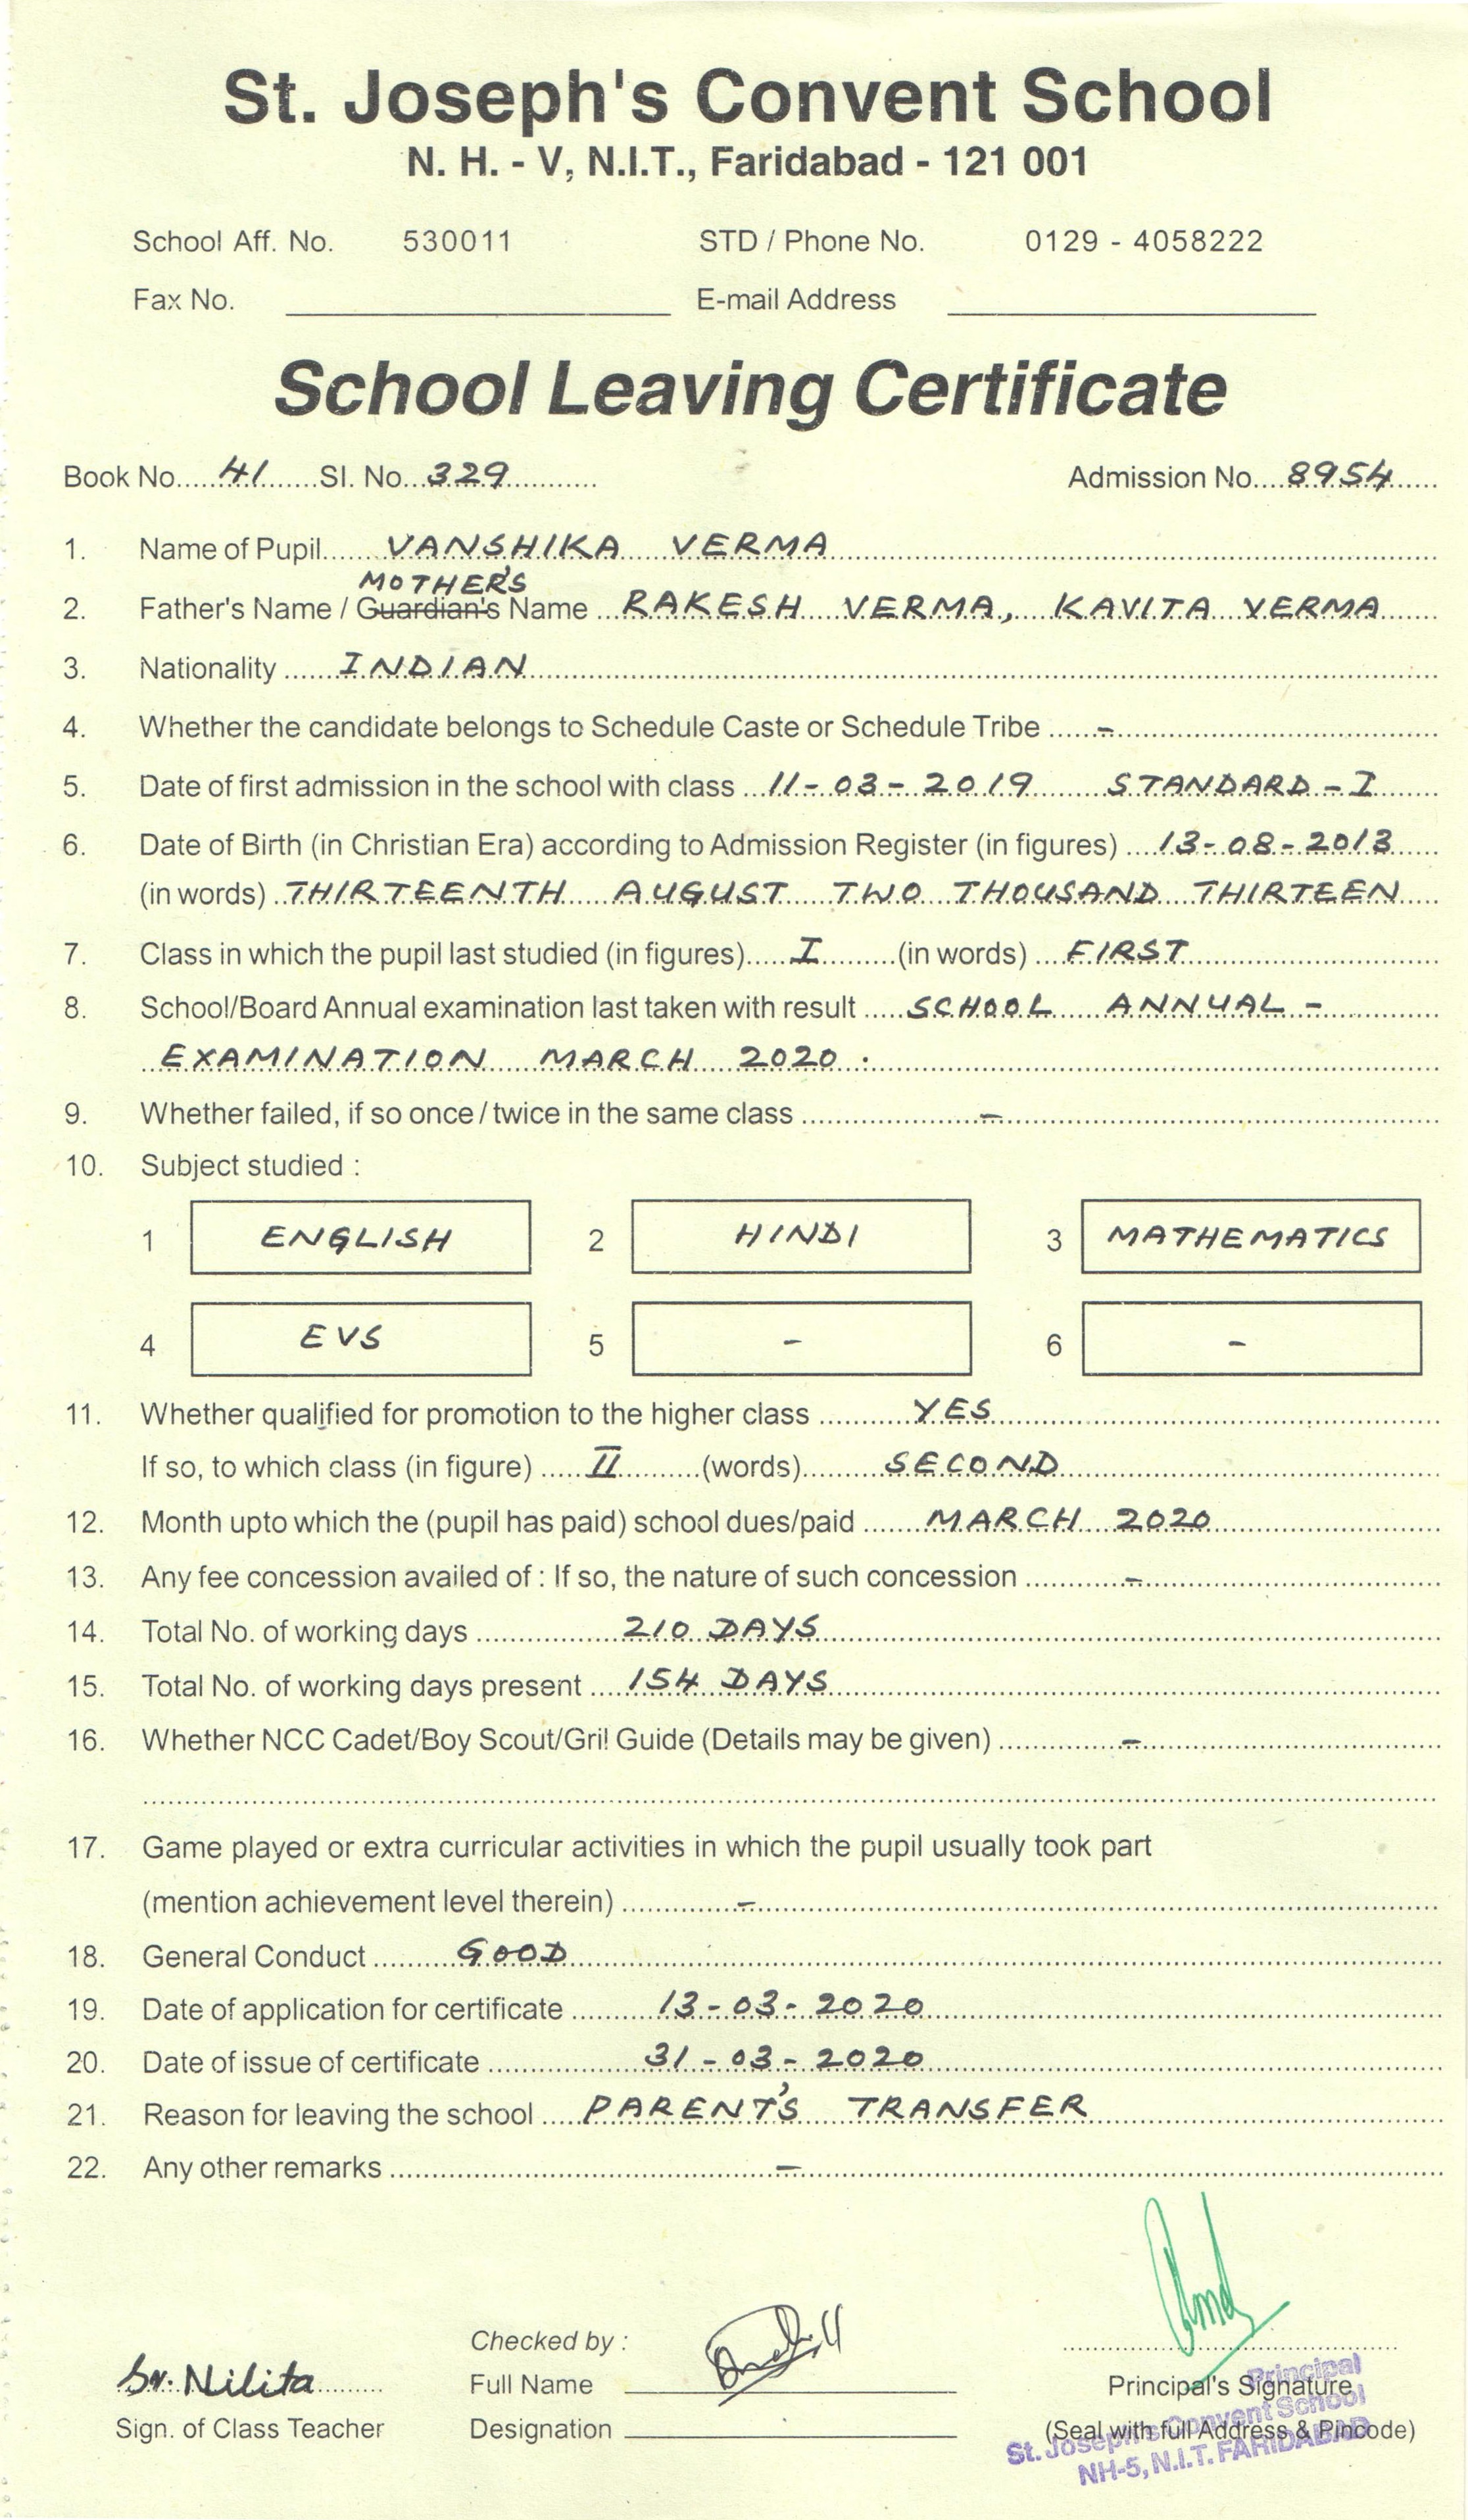 St. Joseph's Convent School
N. H. - V, N.I.T., Faridabad - 121 001
School Aff. No. 530011 STD / Phone No. 0129 - 4058222
Fax No. E-mail Address
School Leaving Certificate
Book No.....41.......Sl. No...329............ Admission No....8954......
1. Name of Pupil...... VANSHIKA VERMA
MOTHER'S
2. Father's Name / Guardian's Name ... RAKESH VERMA, KAVITA VERMA
3. Nationality ...... INDIAN
4. Whether the candidate belongs to Schedule Caste or Schedule Tribe ...... -
5. Date of first admission in the school with class ... 11-03-2019 STANDARD - I
6. Date of Birth (in Christian Era) according to Admission Register (in figures) .... 13-08-2013
(in words) .. THIRTEENTH AUGUST TWO THOUSAND THIRTEEN
7. Class in which the pupil last studied (in figures)..... I .........(in words) .... FIRST
8. School/Board Annual examination last taken with result ..... SCHOOL ANNUAL -
EXAMINATION MARCH 2020 .
9. Whether failed, if so once / twice in the same class .......... -
10. Subject studied :
1 ENGLISH 2 HINDI 3 MATHEMATICS
4 EVS 5 - 6 -
11. Whether qualified for promotion to the higher class .......... YES
If so, to which class (in figure) ..... II ..........(words)......... SECOND
12. Month upto which the (pupil has paid) school dues/paid ....... MARCH 2020
13. Any fee concession availed of : If so, the nature of such concession ........... -
14. Total No. of working days ................ 210 DAYS
15. Total No. of working days present .... 154 DAYS
16. Whether NCC Cadet/Boy Scout/Gril Guide (Details may be given) ............. -
17. Game played or extra curricular activities in which the pupil usually took part
(mention achievement level therein) ............. -
18. General Conduct ......... GOOD
19. Date of application for certificate ......... 13-03-2020
20. Date of issue of certificate ............... 31-03-2020
21. Reason for leaving the school ..... PARENT'S TRANSFER
22. Any other remarks ............ -
Checked by :
Sr. Nilita Full Name Principal's Signature
Sign. of Class Teacher Designation (Seal with full Address & Pincode)
Principal
St. Joseph's Convent School
NH-5, N.I.T. FARIDABAD